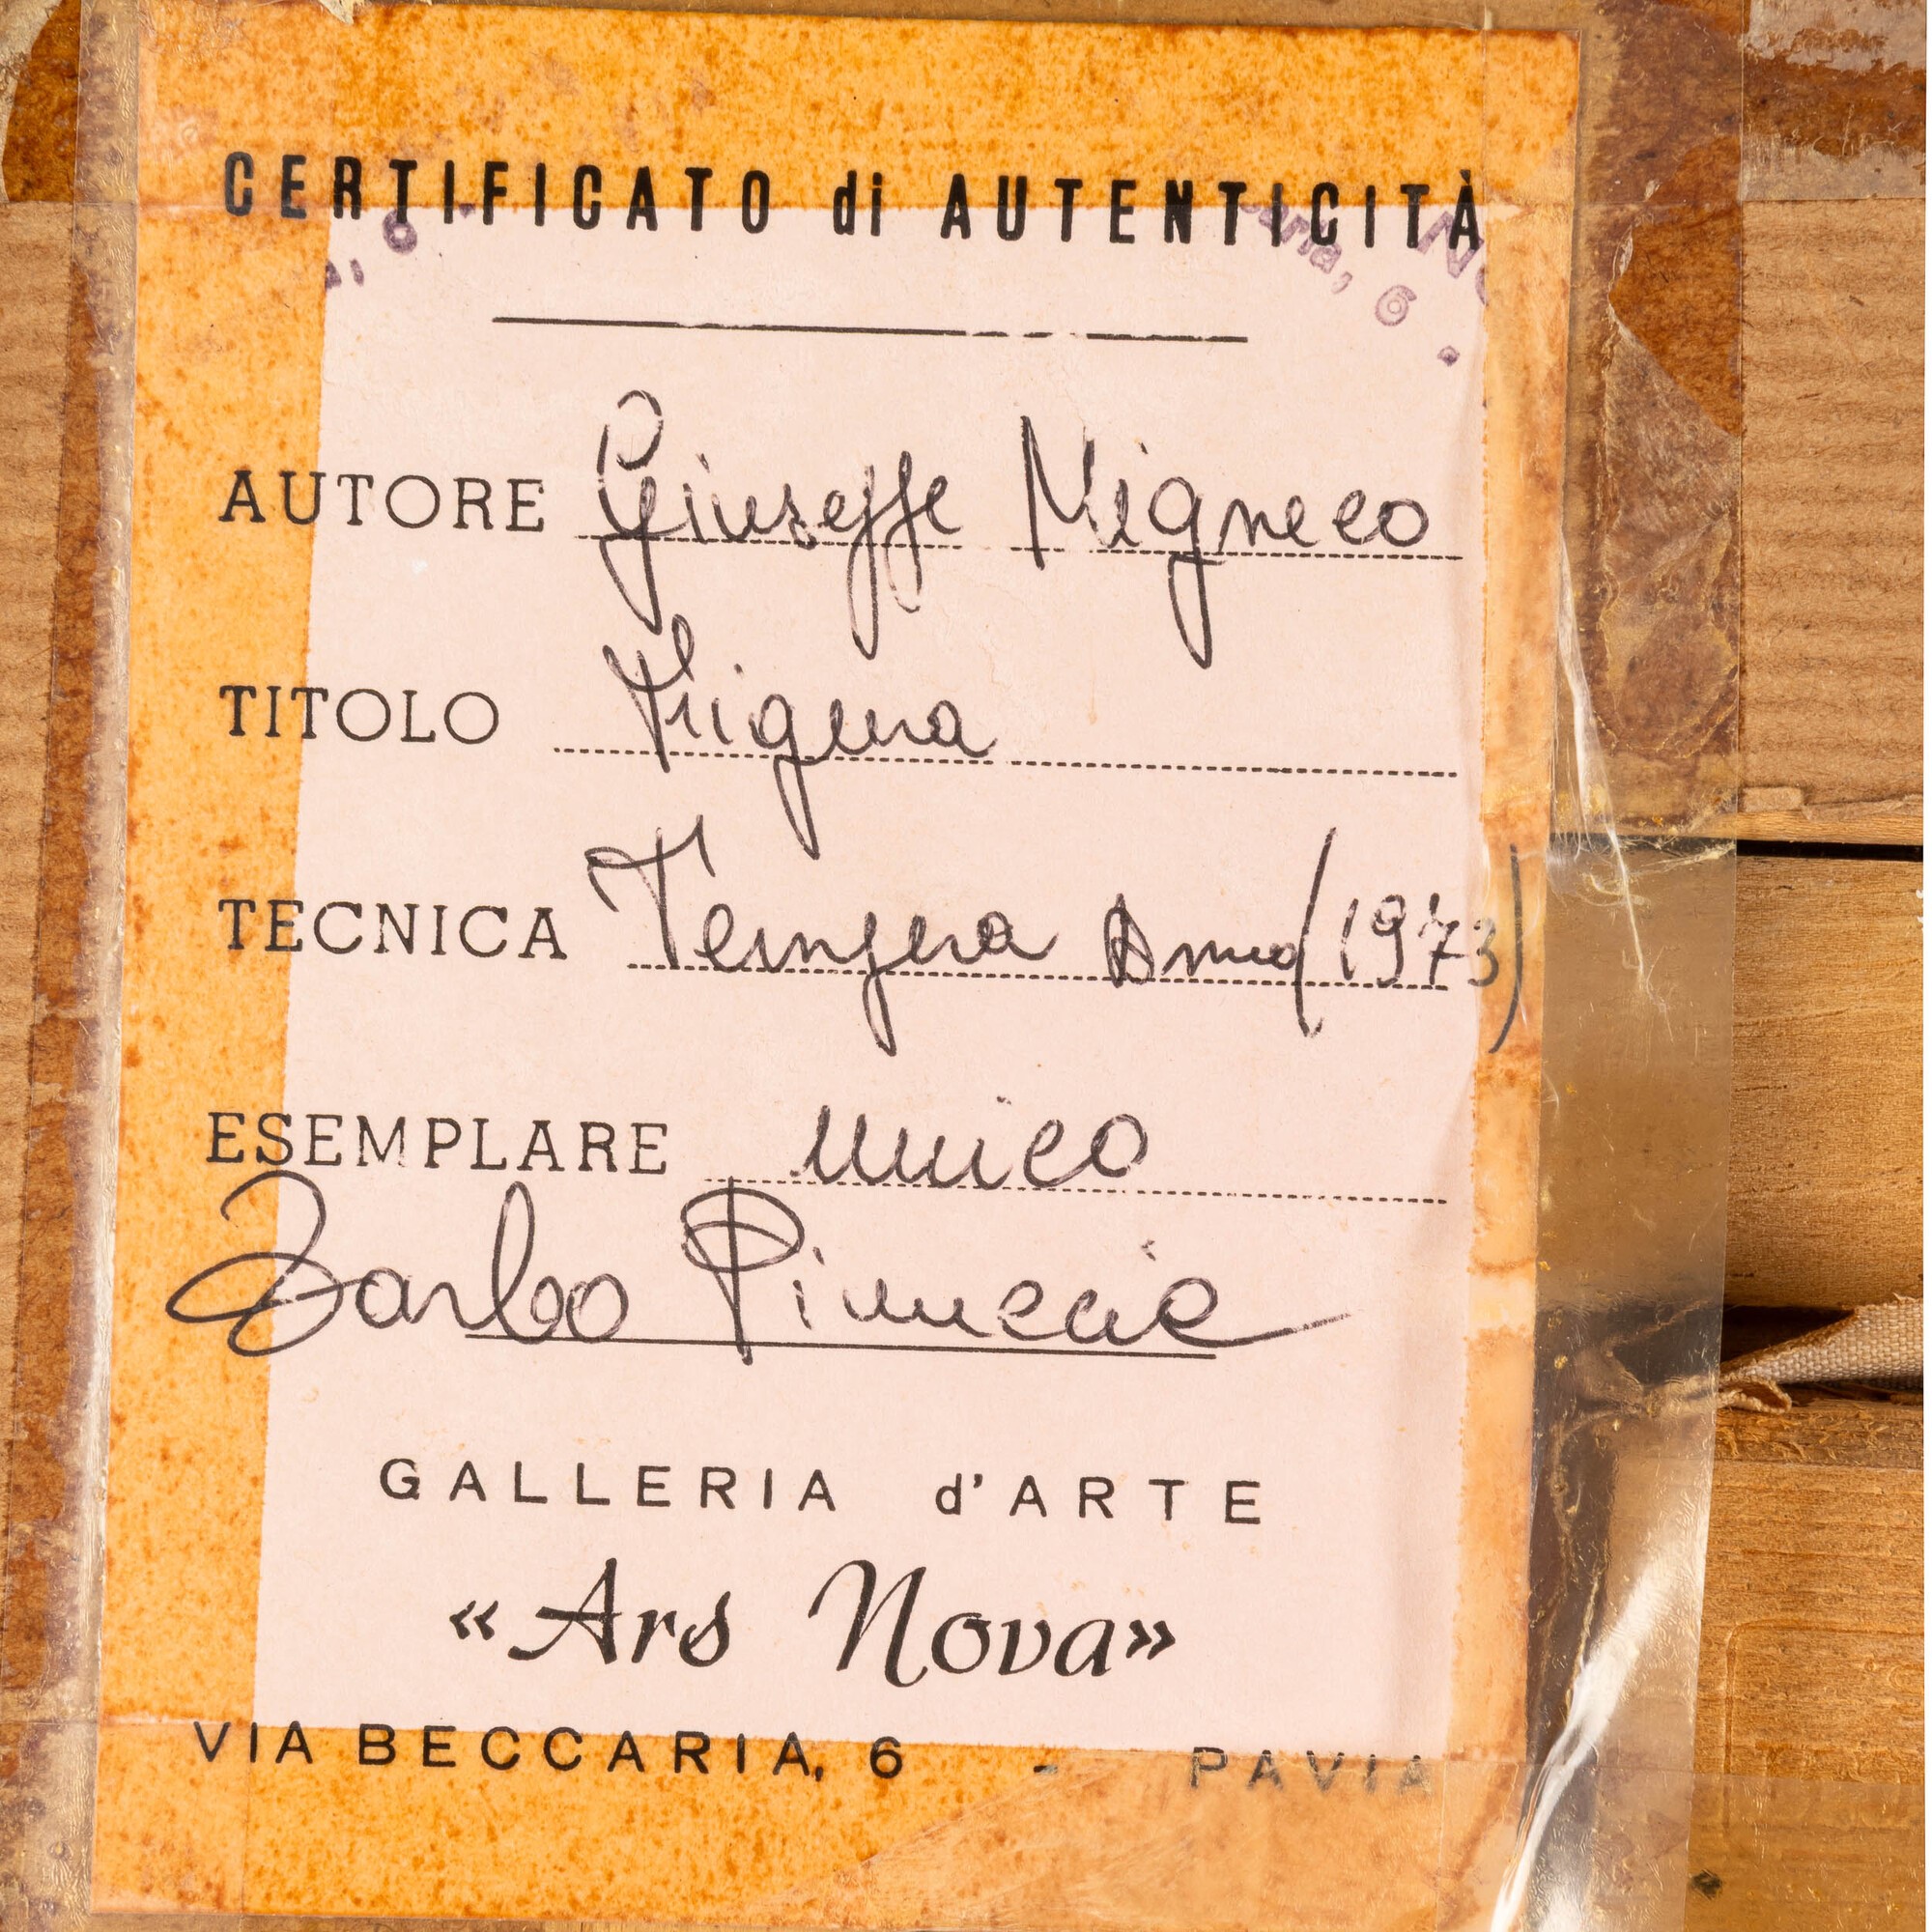 CERTIFICATO di AUTENTICITÀ
, 6
aria, 6 .
AUTORE Giuseppe Migneco
TITOLO
TECNICA Tempera (1973)
ESEMPLARE unico
GALLERIA d'ARTE
«Ars Nova»
VIA BECCARIA, 6 - PAVIA